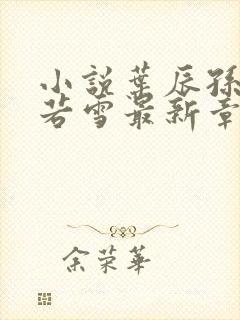 小說葉辰孫
若雪最新章
余荣華